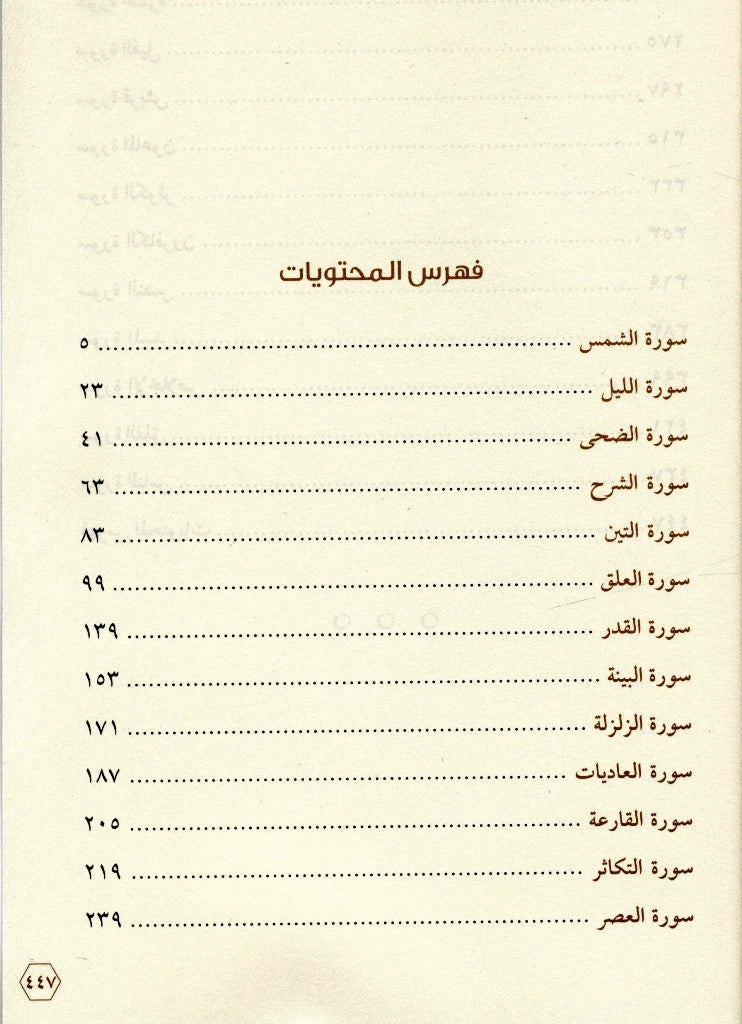 فهرس المحتويات
سورة الشمس ........ ٥
سورة الليل ........ ٢٣
سورة الضحى ........ ٤١
سورة الشرح ........ ٦٣
سورة التين ........ ٨٣
سورة العلق ........ ٩٩
سورة القدر ........ ١٣٩
سورة البينة ........ ١٥٣
سورة الزلزلة ........ ١٧١
سورة العاديات ........ ١٨٧
سورة القارعة ........ ٢٠٥
سورة التكاثر ........ ٢١٩
سورة العصر ........ ٢٣٩
٤٤٧